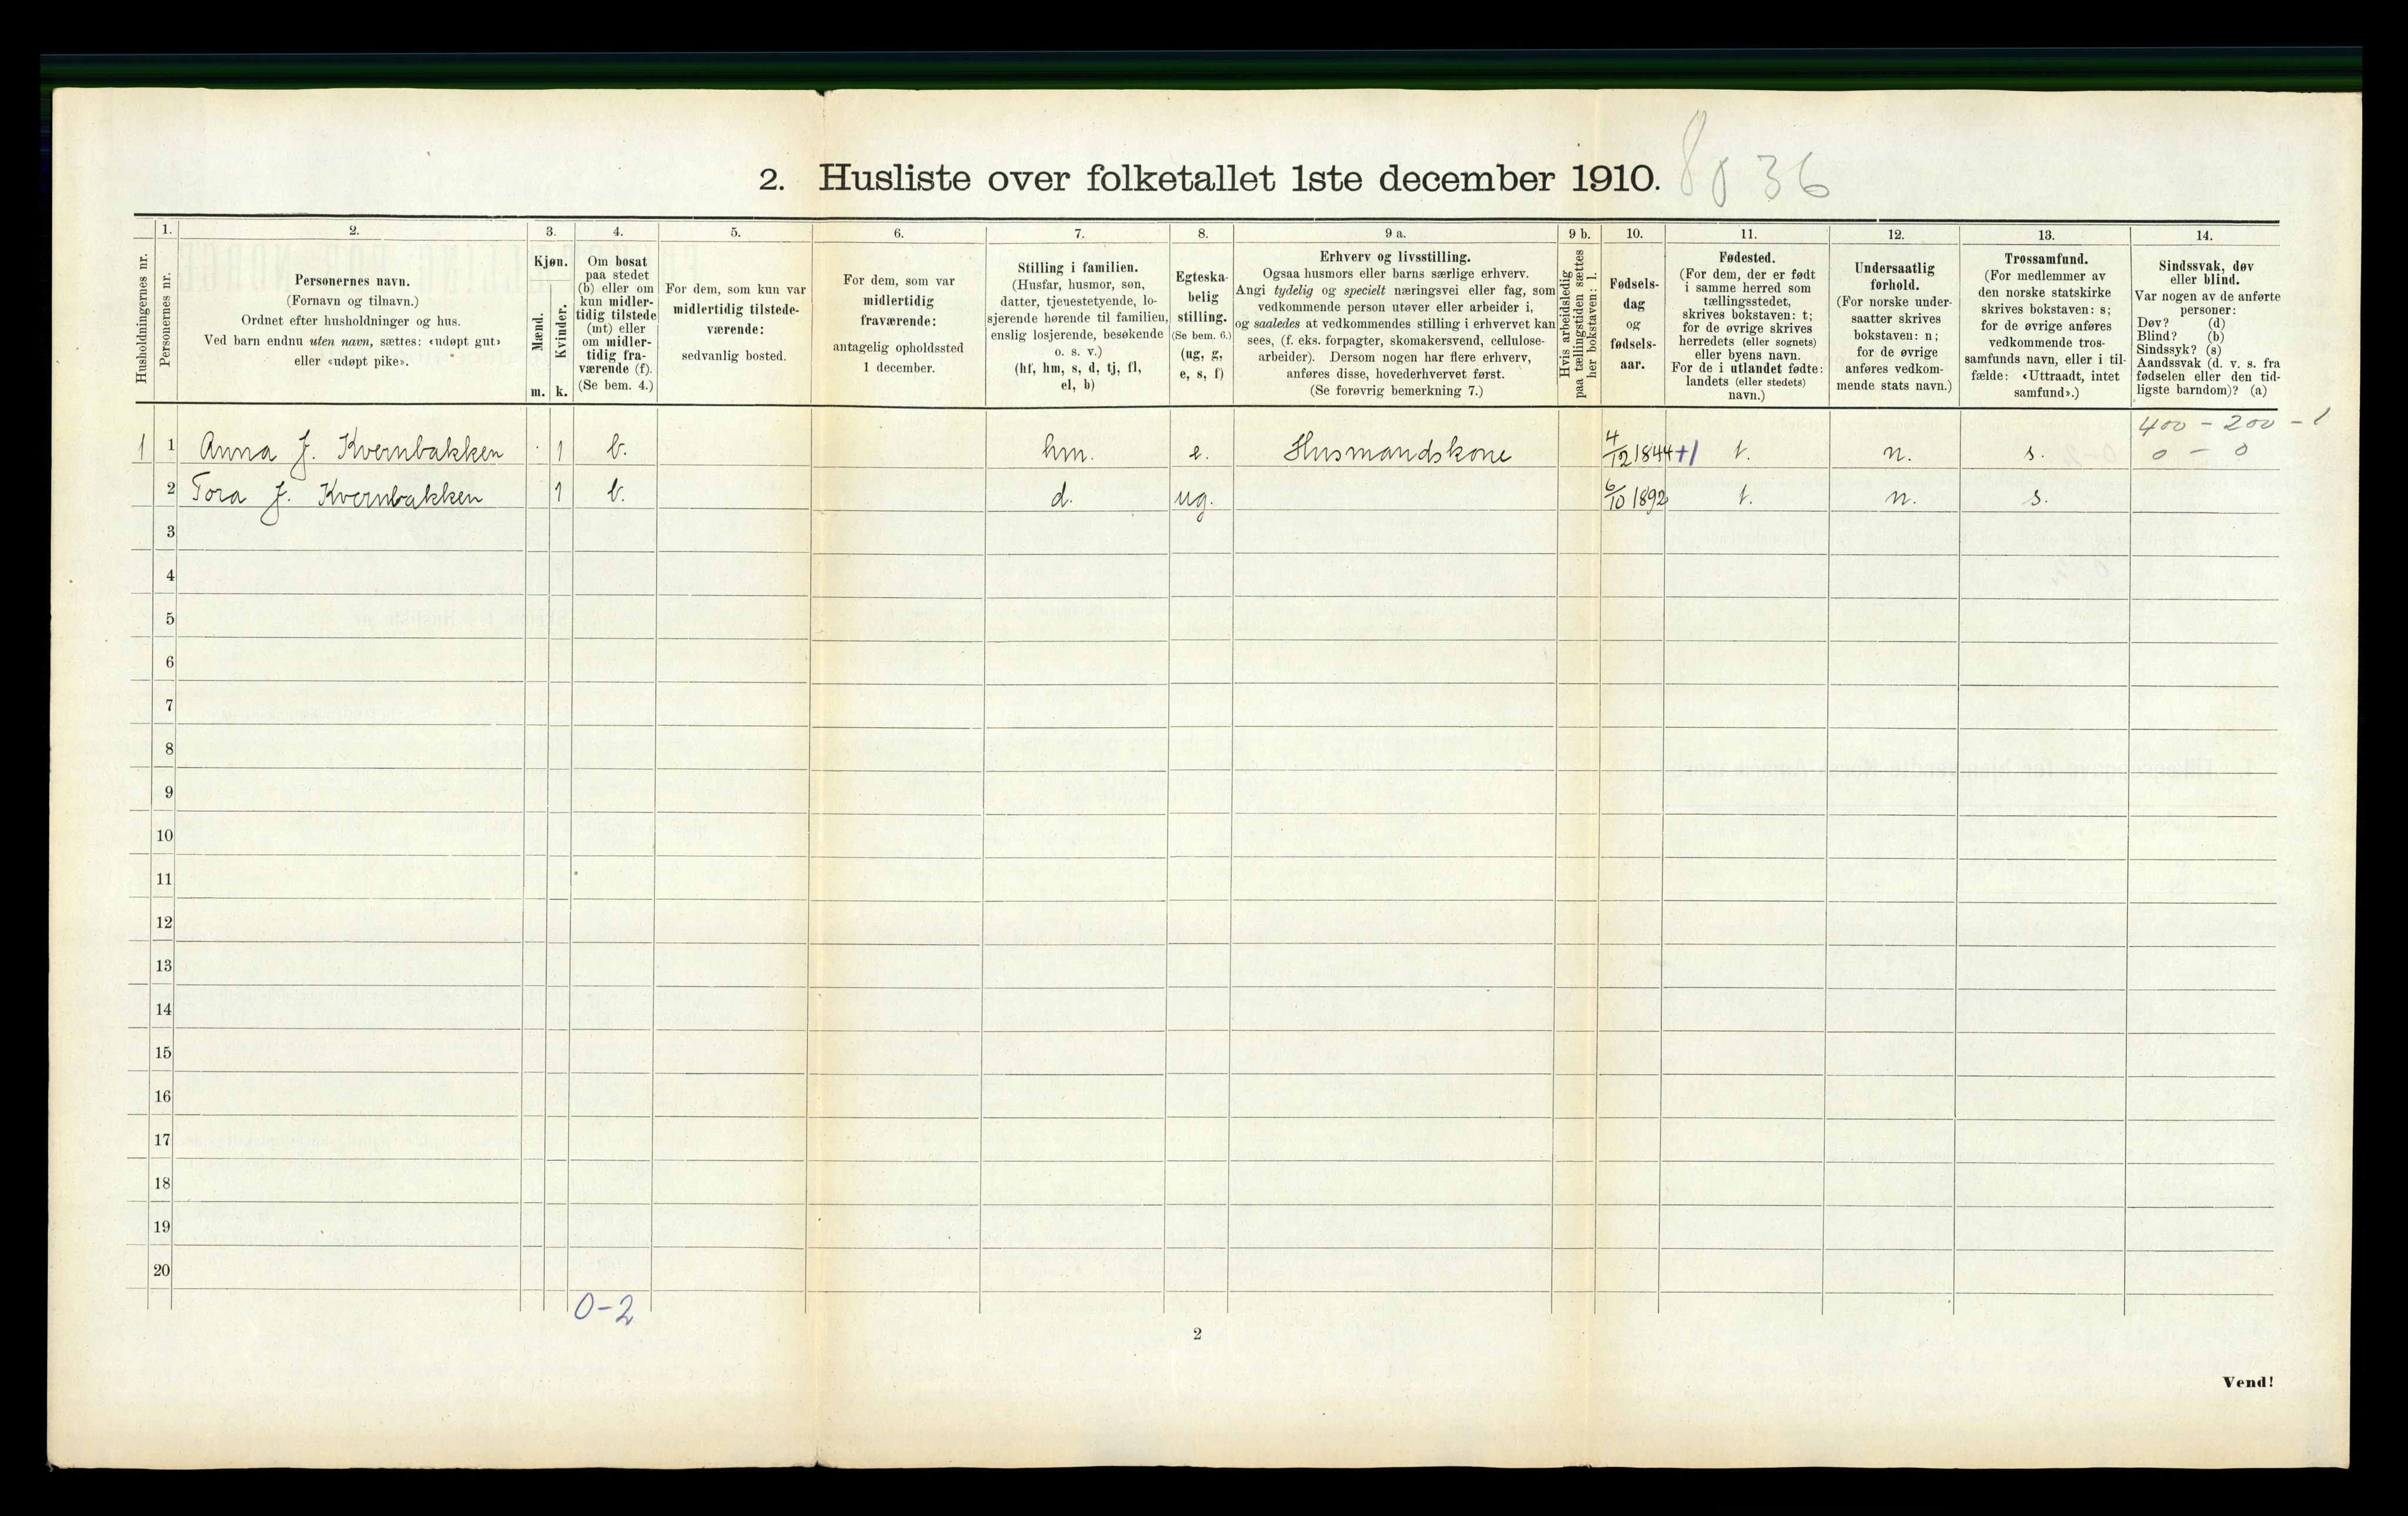 2. Husliste over folketallet 1ste december 1910. 36
1. 2. 3. 4. 5. 6. 7. 8. 9 a. 9 b. 10. 11. 12. 13. 14.
Husholdningernes nr.
Personernes nr.
Personernes navn.
(Fornavn og tilnavn.)
Ordnet efter husholdninger og hus.
Ved barn endnu uten navn, sættes: «udøpt gut»
eller «udøpt pike».
Kjøn.
Mænd.
Kvinder.
m. k.
Om bosat
paa stedet
(b) eller om
kun midler-
tidig tilstede
(mt) eller
om midler-
tidig fra-
værende (f).
(Se bem. 4.)
For dem, som kun var
midlertidig tilstede-
værende:
sedvanlig bosted.
For dem, som var
midlertidig
fraværende:
antagelig opholdssted
1 december.
Stilling i familien.
(Husfar, husmor, søn,
datter, tjenestetyende, lo-
sjerende hørende til familien,
enslig losjerende, besøkende
o. s. v.)
(hf, hm, s, d, tj, fl,
el, b)
Egteska-
belig
stilling.
(Se bem. 6.)
(ug, g,
e, s, f)
Erhverv og livsstilling.
Ogsaa husmors eller barns særlige erhverv.
Angi tydelig og specielt næringsvei eller fag, som
vedkommende person utøver eller arbeider i,
og saaledes at vedkommendes stilling i erhvervet kan
sees, (f. eks. forpagter, skomakersvend, cellulose-
arbeider). Dersom nogen har flere erhverv,
anføres disse, hovederhvervet først.
(Se forøvrig bemerkning 7.)
Hvis arbeidsledig
paa tællingstiden sættes
her bokstaven: l.
Fødsels-
dag
og
fødsels-
aar.
Fødested.
(For dem, der er født
i samme herred som
tællingsstedet,
skrives bokstaven: t;
for de øvrige skrives
herredets (eller sognets)
eller byens navn.
For de i utlandet fødte:
landets (eller stedets)
navn.)
Undersaatlig
forhold.
(For norske under-
saatter skrives
bokstaven: n;
for de øvrige
anføres vedkom-
mende stats navn.)
Trossamfund.
(For medlemmer av
den norske statskirke
skrives bokstaven: s;
for de øvrige anføres
vedkommende tros-
samfunds navn, eller i til-
fælde: «Uttraadt, intet
samfund».)
Sindssvak, døv
eller blind.
Var nogen av de anførte
personer:
Døv? (d)
Blind? (b)
Sindssyk? (s)
Aandssvak (d. v. s. fra
fødselen eller den tid-
ligste barndom)? (a)
400 - 200 - 1
1 1 Anna J. Kvernbakken 1 b. hm. e. Husmandskone 4/12 1844 +1 t. n. s. 0 - 0
2 Tora J. Kvernbakken 1 b. d. ug. 6/10 1892 t. n. s.
3
4
5
6
7
8
9
10
11
12
13
14
15
16
17
18
19
20
0-2
2
Vend!